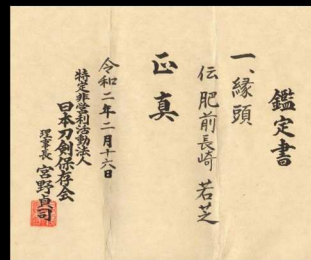 鑑定書
一、縁頭
伝 肥前長崎 若芝
正真
令和二年二月十六日
特定非営利活動法人
日本刀剣保存会
理事長 宮野貞司